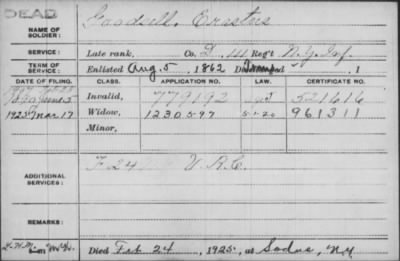 DEAD
NAME OF SOLDIER: Goodsell, Erastus
SERVICE: Late rank, Co. D, 111 Reg't N.Y. Inf.
TERM OF SERVICE: Enlisted Aug. 5, 1862 Discharged , 1
DATE OF FILING. CLASS. APPLICATION NO. LAW. CERTIFICATE NO.
June 5 Invalid, 779192 521616
1925 Mar 17 Widow, 1230597 5-1-20 961311
Minor,
ADDITIONAL SERVICES: F 24 V.R.C.
REMARKS:
Died Feb 24, 1925, at Sodus, N.Y.